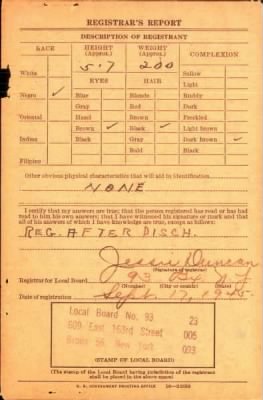 REGISTRAR'S REPORT
DESCRIPTION OF REGISTRANT
RACE HEIGHT (Approx.) WEIGHT (Approx.) COMPLEXION
5-7 200
White Sallow
EYES HAIR Light
Negro ✓ Blue Blonde Ruddy
Gray Red Dark
Oriental Hazel Brown Freckled
Brown ✓ Black ✓ Light Brown
Indian Black Gray Dark Brown ✓
Bald Black
Filipino
Other obvious physical characteristics that will aid in identification
NONE
I certify that my answers are true; that the person registered has read or has had
read to him his own answers; that I have witnessed his signature or mark and that
all of his answers of which I have knowledge are true, except as follows:
REG. AFTER DISCH.
Jessie Duncan
(Signature of registrar)
Registrar for Local Board 93
(Number) (City or county) (State)
Date of registration Sept. 17, 1945
Local Board No. 93 23
609 East 163rd Street 005
Bronx 56, New York 093
(STAMP OF LOCAL BOARD)
(The stamp of the Local Board having jurisdiction of the registrant
shall be placed in the above space)
U. S. GOVERNMENT PRINTING OFFICE